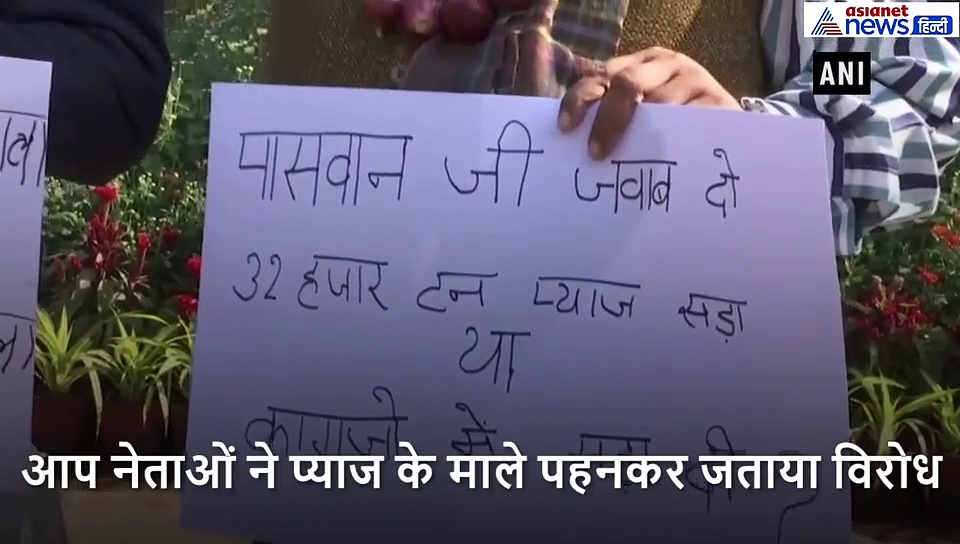 asianet
news हिन्दी
ANI
पासवान जी जवाब दो
32 हजार टन प्याज सड़ा
या
कागजो में
आप नेताओं ने प्याज के माले पहनकर जताया विरोध